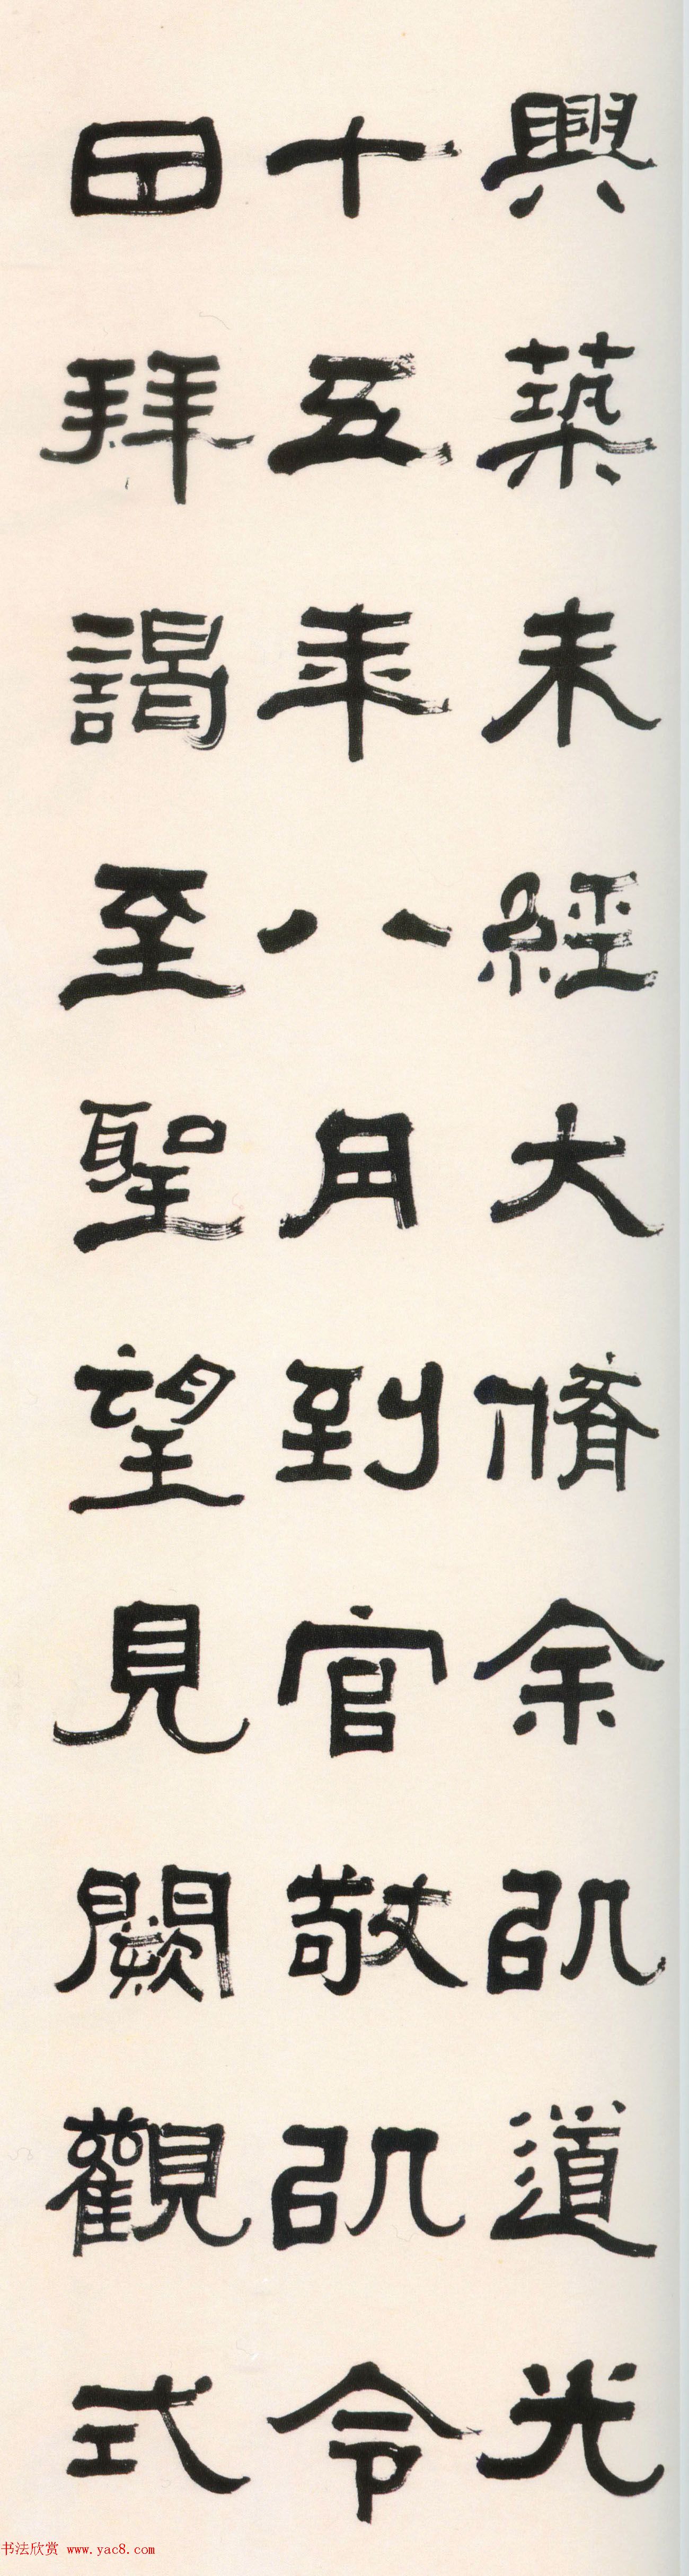 興築未經大脩余㠯道光
十五年八月到官敬㠯令
日拜謁至聖望見闕觀式
书法欣赏 www.yac8.com